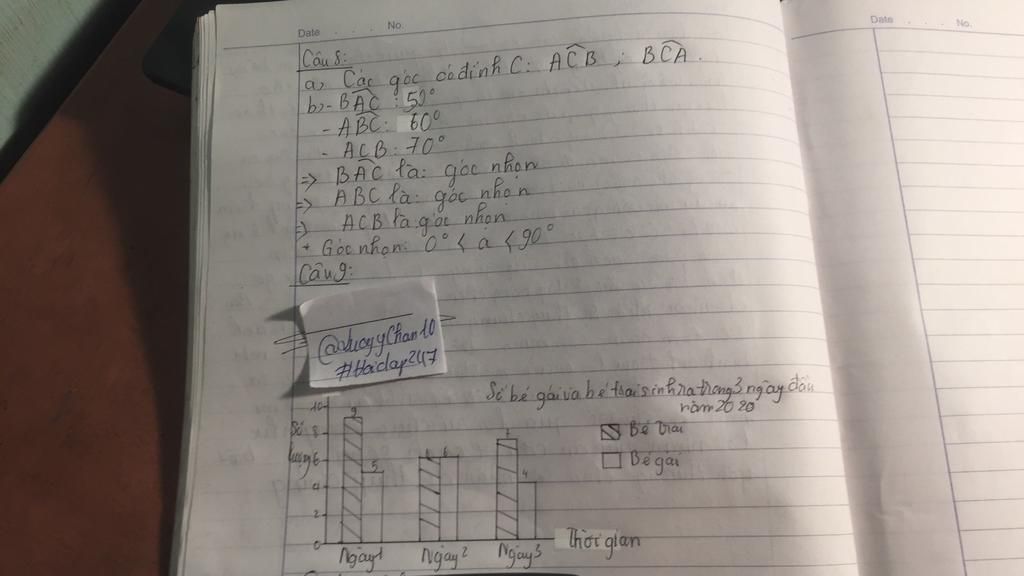 Date . . . . No.
Date . . . . No.
Câu 8:
a, Các góc có đỉnh C: ACB ; BCA.
b, - BAC : 50°
- ABC: 60°
- ACB: 70°
=> BAC là: góc nhọn
=> ABC là: góc nhọn
=> ACB là góc nhọn
+ Góc nhọn: 0° < a < 90°
Câu 9:
#Hoidap247
Số bé gái và bé trai sinh ra trong 3 ngày đầu
năm 2020
Số
lượng
10
8
6
4
2
0
9
5
6
6
7
4
Bé trai
Bé gái
Ngày 1
Ngày 2
Ngày 3
Thời gian